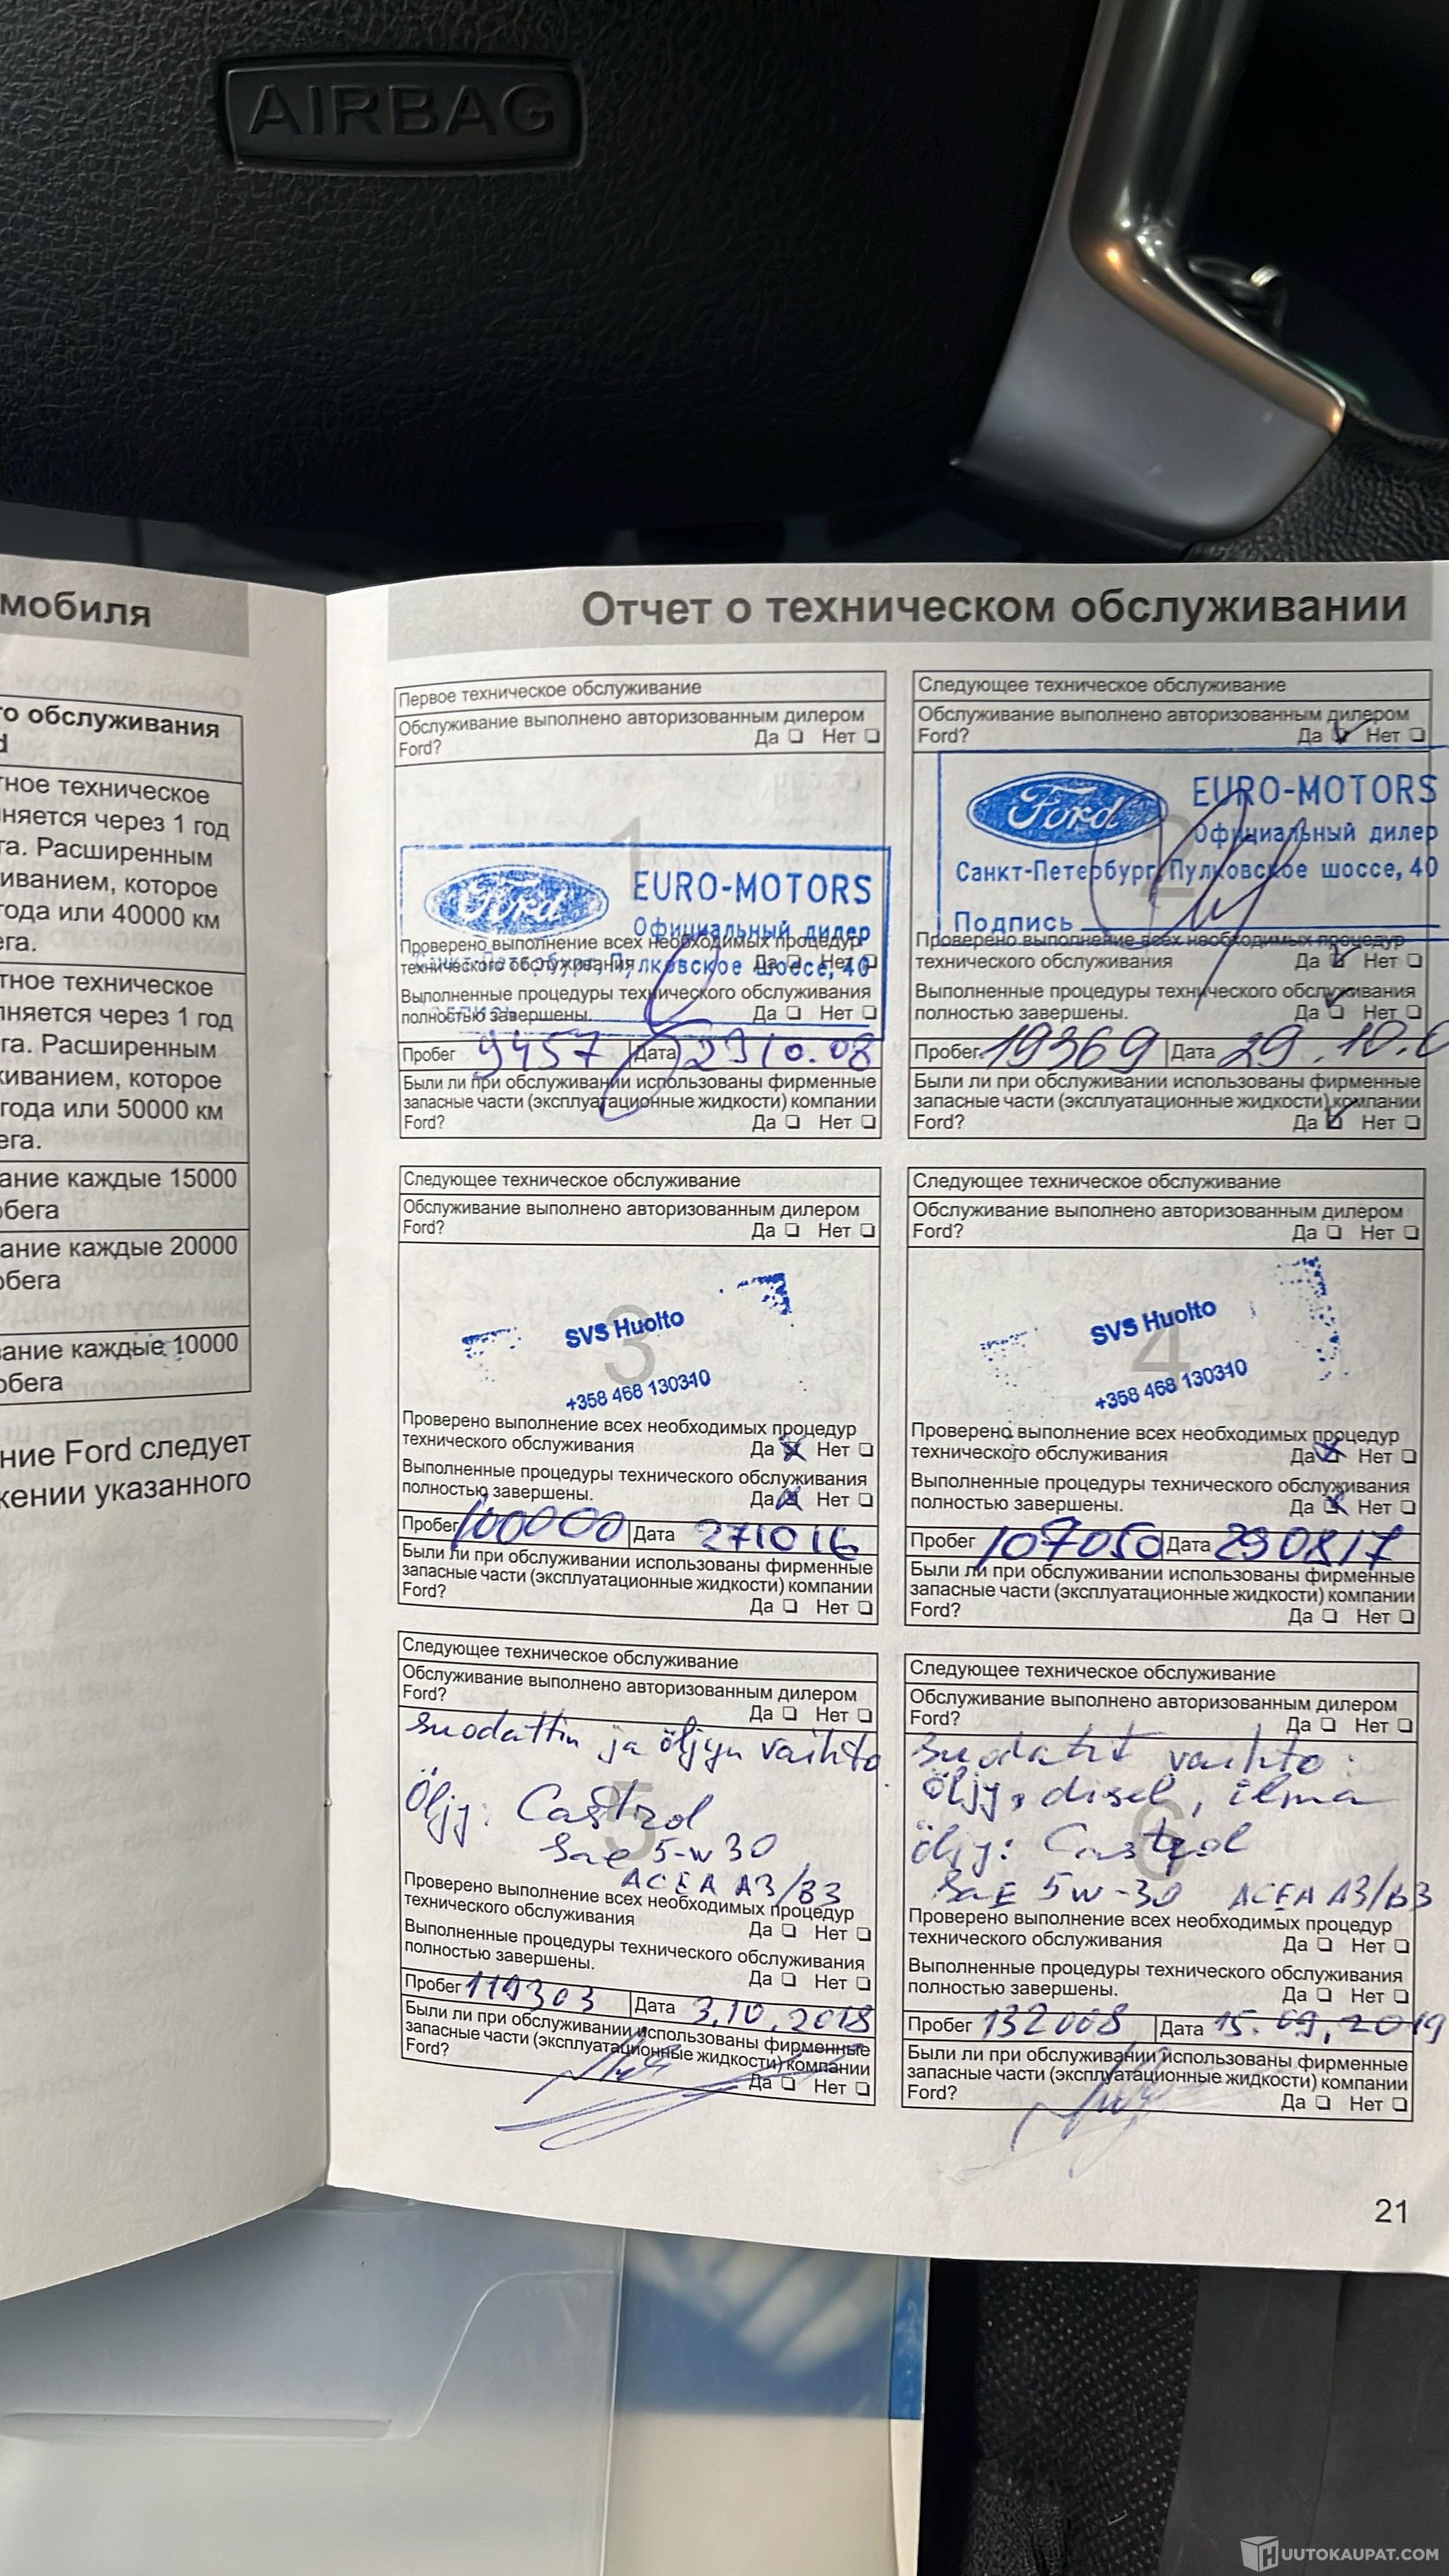 AIRBAG
мобиля
Отчет о техническом обслуживании
о обслуживания
d
тное техническое
лняется через 1 год
га. Расширенным
иванием, которое
года или 40000 км
ега.
тное техническое
лняется через 1 год
га. Расширенным
живанием, которое
года или 50000 км
ега.
ание каждые 15000
обега
ание каждые 20000
обега
ание каждые 10000
обега
ние Ford следует
жении указанного
Первое техническое обслуживание
Обслуживание выполнено авторизованным дилером
Ford? Да Нет
1
Ford EURO-MOTORS
Официальный дилер
Пулковское шоссе, 40
Проверено выполнение всех необходимых процедур
технического обслуживания Да Нет
Выполненные процедуры технического обслуживания
полностью завершены. Да Нет
Пробег 9457 Дата 29 10.08
Были ли при обслуживании использованы фирменные
запасные части (эксплуатационные жидкости) компании
Ford? Да Нет
Следующее техническое обслуживание
Обслуживание выполнено авторизованным дилером
Ford? Да Нет
2
Ford EURO-MOTORS
Официальный дилер
Санкт-Петербург, Пулковское шоссе, 40
Подпись
Проверено выполнение всех необходимых процедур
технического обслуживания Да Нет
Выполненные процедуры технического обслуживания
полностью завершены. Да Нет
Пробег 19369 Дата 29.10.0
Были ли при обслуживании использованы фирменные
запасные части (эксплуатационные жидкости) компании
Ford? Да Нет
Следующее техническое обслуживание
Обслуживание выполнено авторизованным дилером
Ford? Да Нет
3
SVS Huolto
+358 468 130310
Проверено выполнение всех необходимых процедур
технического обслуживания Да Нет
Выполненные процедуры технического обслуживания
полностью завершены. Да Нет
Пробег 100000 Дата 271016
Были ли при обслуживании использованы фирменные
запасные части (эксплуатационные жидкости) компании
Ford? Да Нет
Следующее техническое обслуживание
Обслуживание выполнено авторизованным дилером
Ford? Да Нет
4
SVS Huolto
+358 468 130310
Проверено выполнение всех необходимых процедур
технического обслуживания Да Нет
Выполненные процедуры технического обслуживания
полностью завершены. Да Нет
Пробег 107050 Дата 290817
Были ли при обслуживании использованы фирменные
запасные части (эксплуатационные жидкости) компании
Ford? Да Нет
Следующее техническое обслуживание
Обслуживание выполнено авторизованным дилером
Ford? Да Нет
suodattin ja öljyn vaihto
5
Öljy: Castrol
Sae 5-w 30
ACEA A3/B3
Проверено выполнение всех необходимых процедур
технического обслуживания Да Нет
Выполненные процедуры технического обслуживания
полностью завершены. Да Нет
Пробег 119303 Дата 3.10.2018
Были ли при обслуживании использованы фирменные
запасные части (эксплуатационные жидкости) компании
Ford? Да Нет
Следующее техническое обслуживание
Обслуживание выполнено авторизованным дилером
Ford? Да Нет
suodatit vaihto:
öljy, disel, ilma
6
öljy: Castrol
SaE 5w-30 ACEA A3/B3
Проверено выполнение всех необходимых процедур
технического обслуживания Да Нет
Выполненные процедуры технического обслуживания
полностью завершены. Да Нет
Пробег 132008 Дата 15.09.2019
Были ли при обслуживании использованы фирменные
запасные части (эксплуатационные жидкости) компании
Ford? Да Нет
21
HUUTOKAUPAT.COM